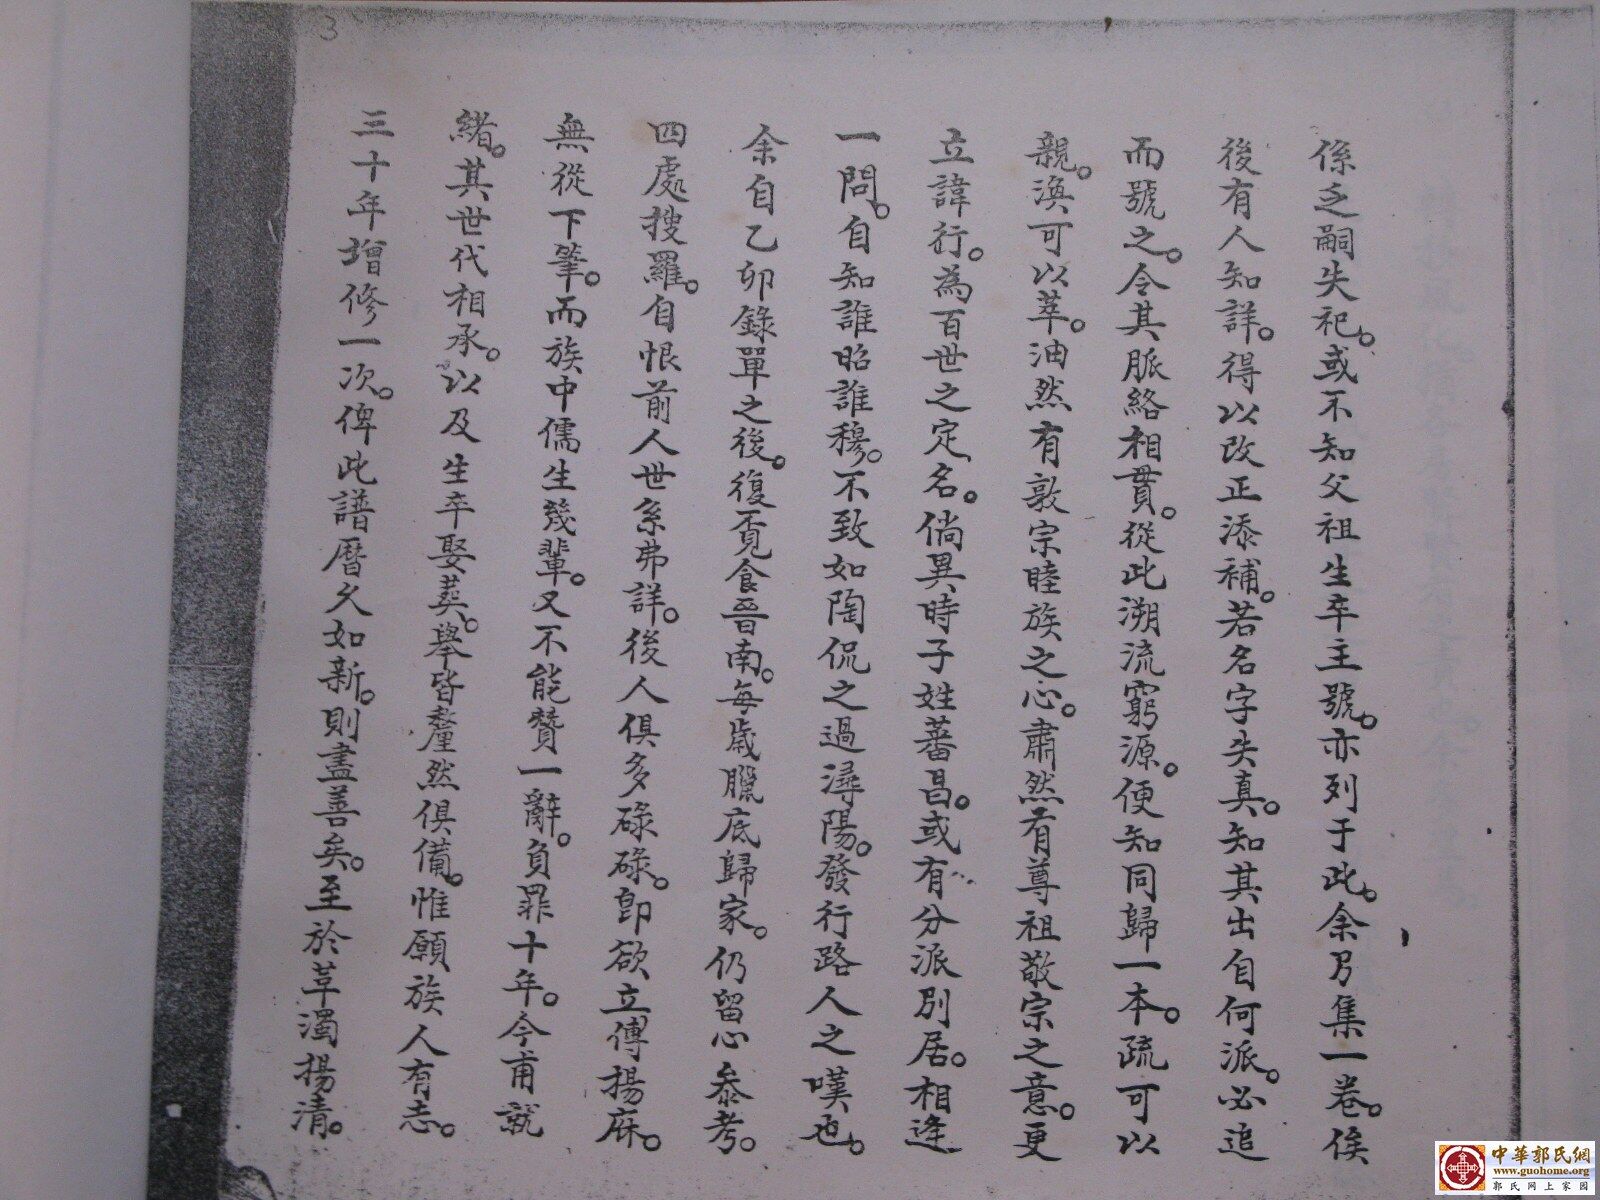 3
係乏嗣失祀。或不知父祖生卒主號。亦列于此。余乃集一卷。俟
後有人知詳。得以改正添補。若名字失真。知其出自何派。必追
而號之。令其脈絡相貫。從此溯流窮源。便知同歸一本。疏可以
親。渙可以萃。油然有敦宗睦族之心。肅然有尊祖敬宗之意。更
立諱行。為百世之定名。倘異時子姓蕃昌。或有分派別居。相逢
一問。自知誰昭誰穆。不致如陶侃之過潯陽。發行路人之嘆也。
余自乙卯錄單之後。復覓食晉南。每歲臘底歸家。仍留心參考。
四處搜羅。自恨前人世系弗詳。後人俱多碌碌。即欲立傳揚庥。
無從下筆。而族中儒生幾輩。又不能贊一辭。負罪十年。今甫就
緒。其世代相承。以及生卒娶葬。舉皆釐然俱備。惟願族人有志。
三十年增修一次。俾此譜曆久如新。則盡善矣。至於草濁揚清。
中華郭氏網
www.guohome.org
郭氏网上家园